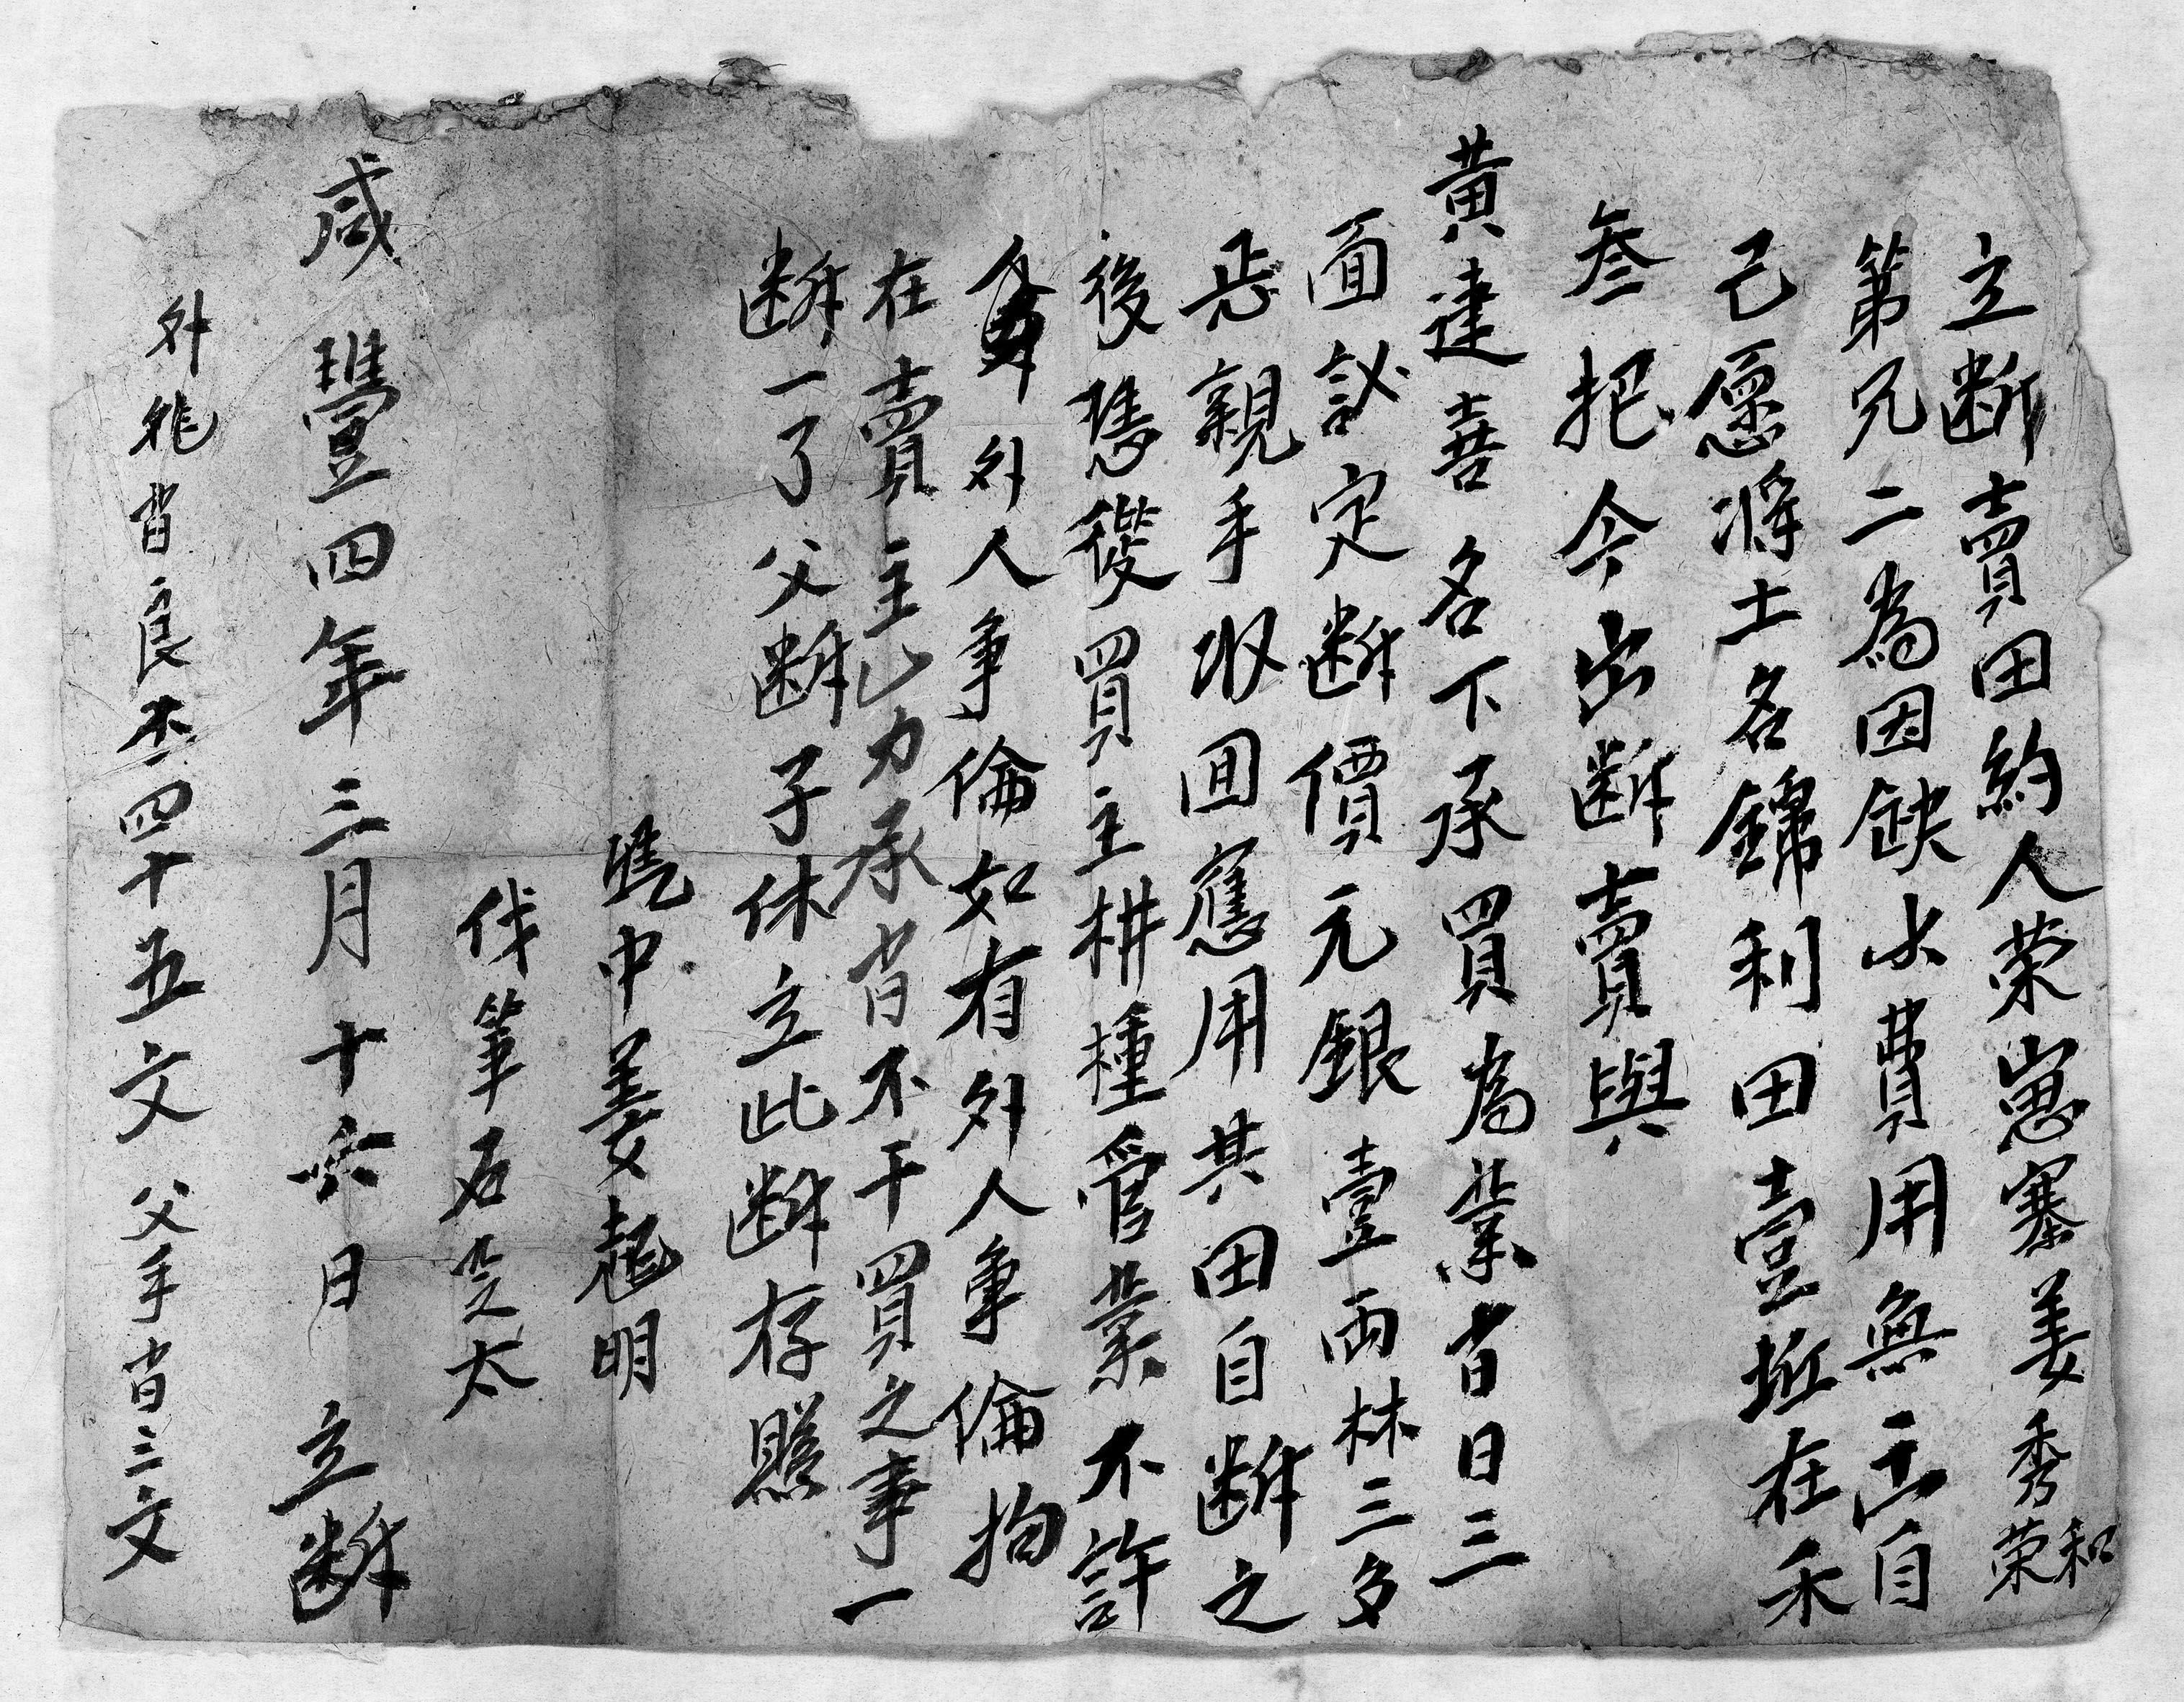 立断賣田約人荣崽寨姜秀和荣
第兄二為因缺少費用無 自
己愿将土名錦利田壹坵在禾
叁把今出断賣與
黄建喜名下承買為業當日三
面訟定断價元銀壹両林三多
忢親手收回應用其田自断之
後慿從買主耕種管業不許
外人争倫如有外人争倫拘
在賣主山力承当不干買之事一
断一了父断子休立此断存照
慿中姜起明
伐筆石 太
咸豐四年三月十六日 立断
外 當良 四十五文 父手當三文